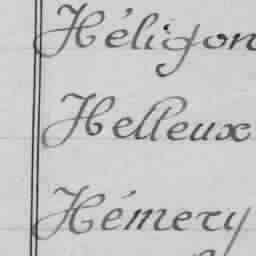 Héligon
Helleux
Hémery